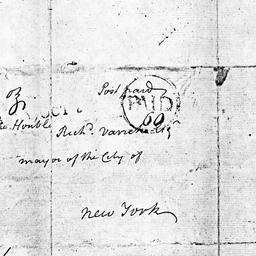 Post paid
PAID
60
The Honble Richd. Varick Esqr
mayor of the City of
New York